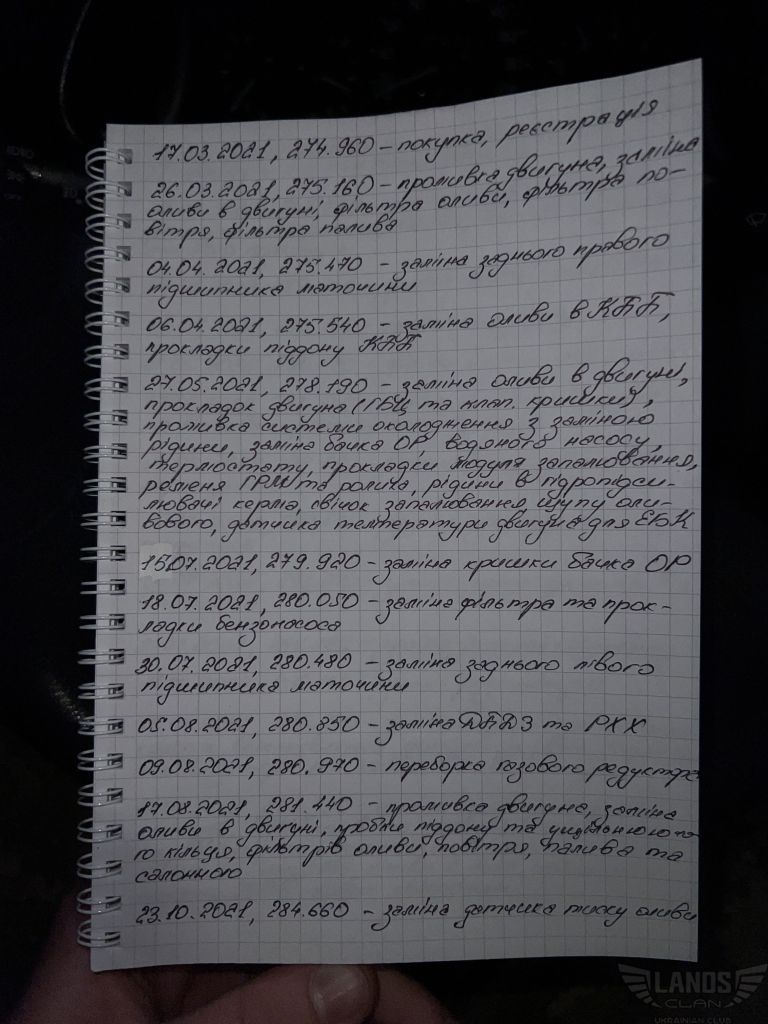 17.03.2021, 274.960 – покупка, реєстрація
26.03.2021, 275.160 – промивка двигуна, заміна
оливи в двигуні, фільтра оливи, фільтра по-
вітря, фільтра палива
04.04.2021, 275.470 – заміна заднього правого
підшипника маточини
06.04.2021, 275.540 – заміна оливи в КПП,
прокладки піддону КПП
27.05.2021, 278.190 – заміна оливи в двигуні,
прокладок двигуна (ГБЦ та клап. кришки),
промивка системи охолодження з заміною
рідини, заміна бачка ОР, водяного насосу,
термостату, прокладки модуля запалювання,
ременя ГРМ та ролича, рідини в гідропідси-
лювачі керма, свічок запалювання, щупу оли-
вового, датчика температури двигуна для ЕБК
15.07.2021, 279.920 – заміна кришки бачка ОР
18.07.2021, 280.050 – заміна фільтра та прок-
ладки бензонасоса
30.07.2021, 280.480 – заміна заднього лівого
підшипника маточини
05.08.2021, 280.850 – заміна ДПДЗ та РХХ
09.08.2021, 280.970 – переборка газового редуктора
17.08.2021, 281.440 – промивка двигуна, заміна
оливи в двигуні, пробки піддону та ущільнююче-
го кільця, фільтрів оливи, повітря, палива та
салонного
23.10.2021, 284.660 – заміна датчика тиску оливи
LANOS
CLAN
UKRAINIAN CLUB